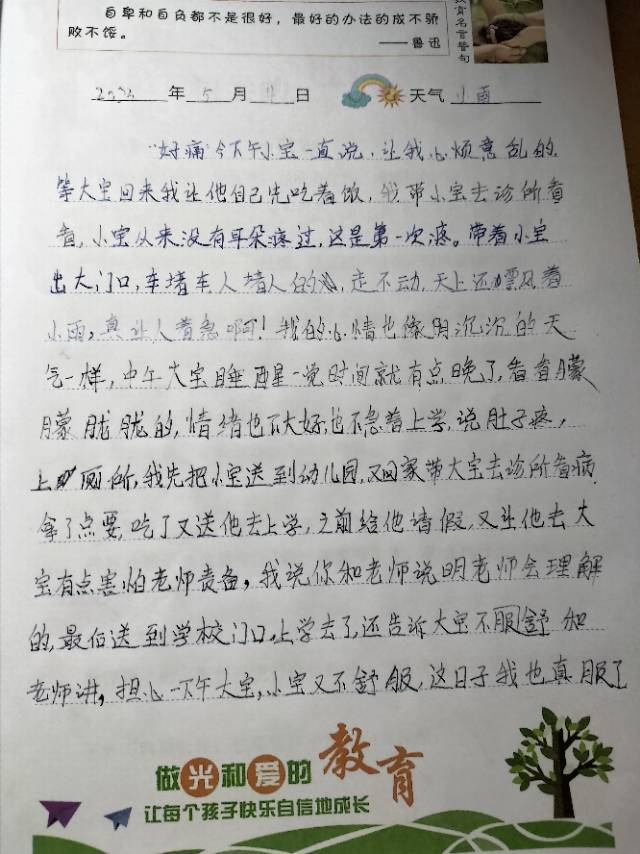 自卑和自负都不是很好，最好的办法的成不骄
败不馁。
——鲁迅
教育名言警句
年5月日 天气 小雨
"好痛"今下午小宝一直说，让我心烦意乱的
等大宝回来我让他自己先吃着饭，我带小宝去诊所看
看，小宝从来没有耳朵疼过，这是第一次疼。带着小宝
出大门口，车堵车人堵人的，走不动，天上还飘着
小雨，真让人着急啊！我的心情也像阴沉沉的天
气一样，中午大宝睡醒一觉时间就有点晚了，看着朦
朦胧胧的，情绪也不大好，也不急着上学，说肚子疼，
上厕所，我先把小宝送到幼儿园，又回家带大宝去诊所看病
拿了点要，吃了又送他去上学，之前给他请假，又让他去大
宝有点害怕老师责备，我说你和老师说明老师会理解
的，最后送到学校门口，上学去了，还告诉大宝不服舒和
老师讲，担心一下午大宝，小宝又不舒服，这日子我也真服了
做光和爱的教育
让每个孩子快乐自信地成长